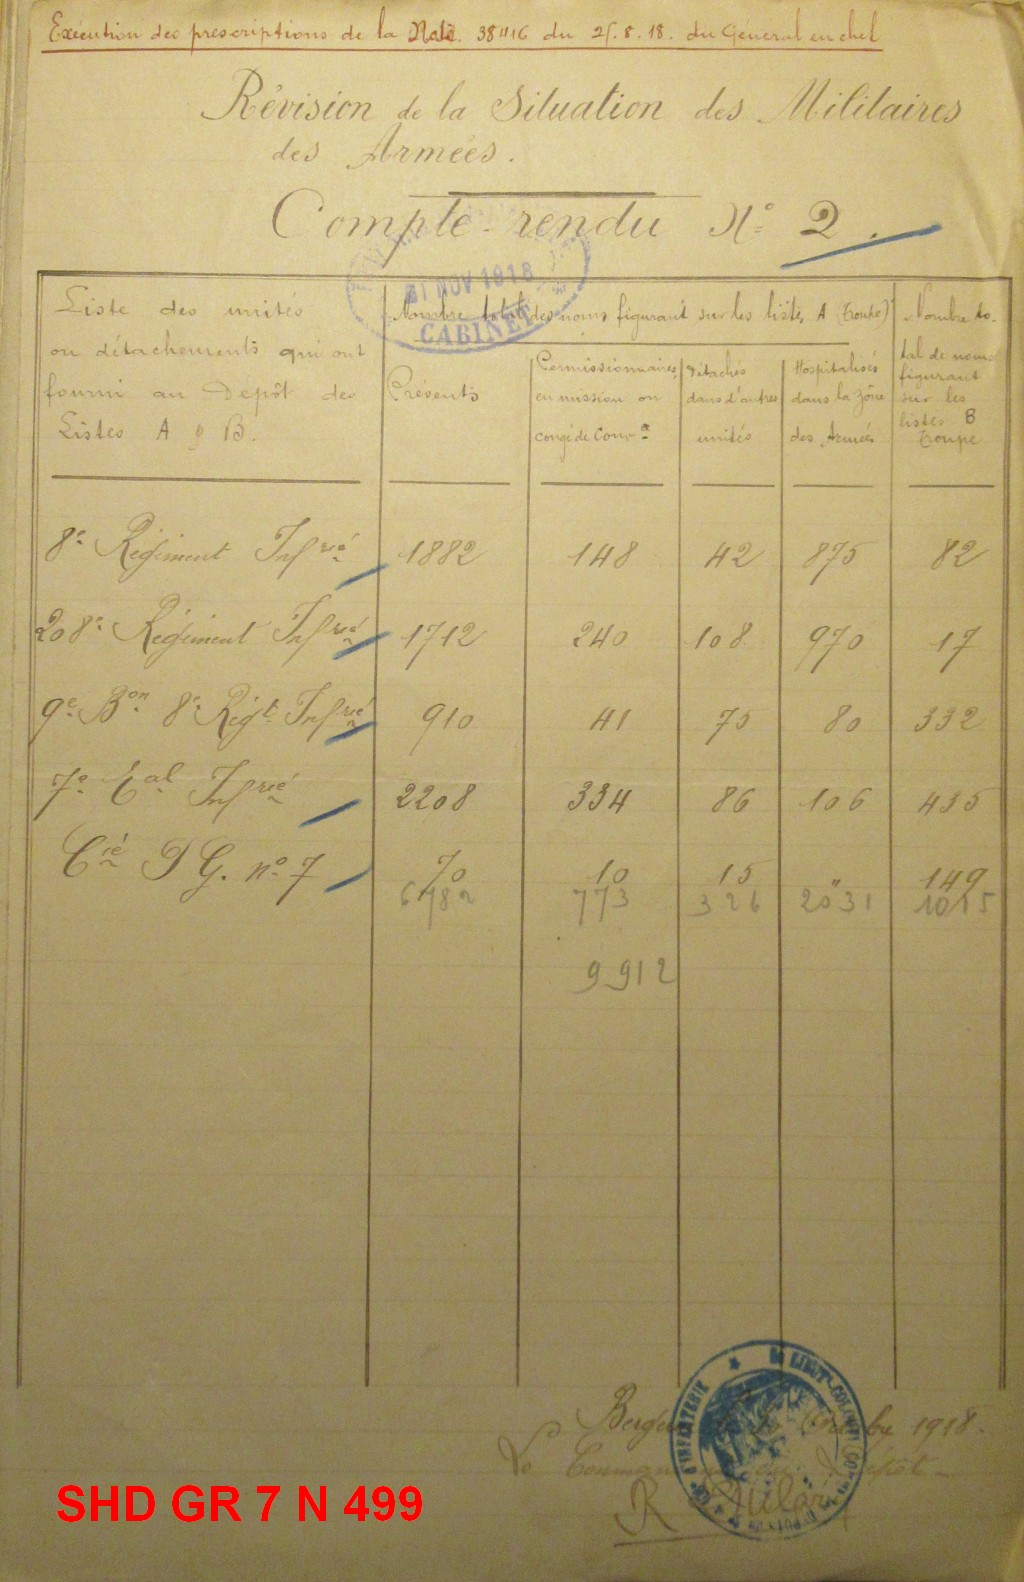 Exécution des prescriptions de la Note 38416 du 25.8.18. du Général en chef
Révision de la Situation des Militaires
des Armées.
Compte-rendu N° 2.
NOV 1918
CABINET
Liste des unités
ou détachements qui ont
fourni au Dépôt des
Listes A & B.
Nombre total des noms figurant sur les listes A (Troupe)
Présents
Permissionnaires,
en mission ou
congé de Conv.ce
Détachés
dans d'autres
unités
Hospitalisés
dans la zône
des Armées
Nombre to-
tal de noms
figurant
sur les
listes B
Troupe
8e Régiment Infrie 1882 148 42 875 82
208e Régiment Infrie 1712 240 108 970 17
9e Bon 8e Régt Infrie 910 41 75 80 332
7e Eal Infrie 2208 334 86 106 435
Cie P G. n° 7 70 10 15 " 149
6782 773 326 2031 1015
9912
1918.
Le Commandant du Dépôt
R
SHD GR 7 N 499